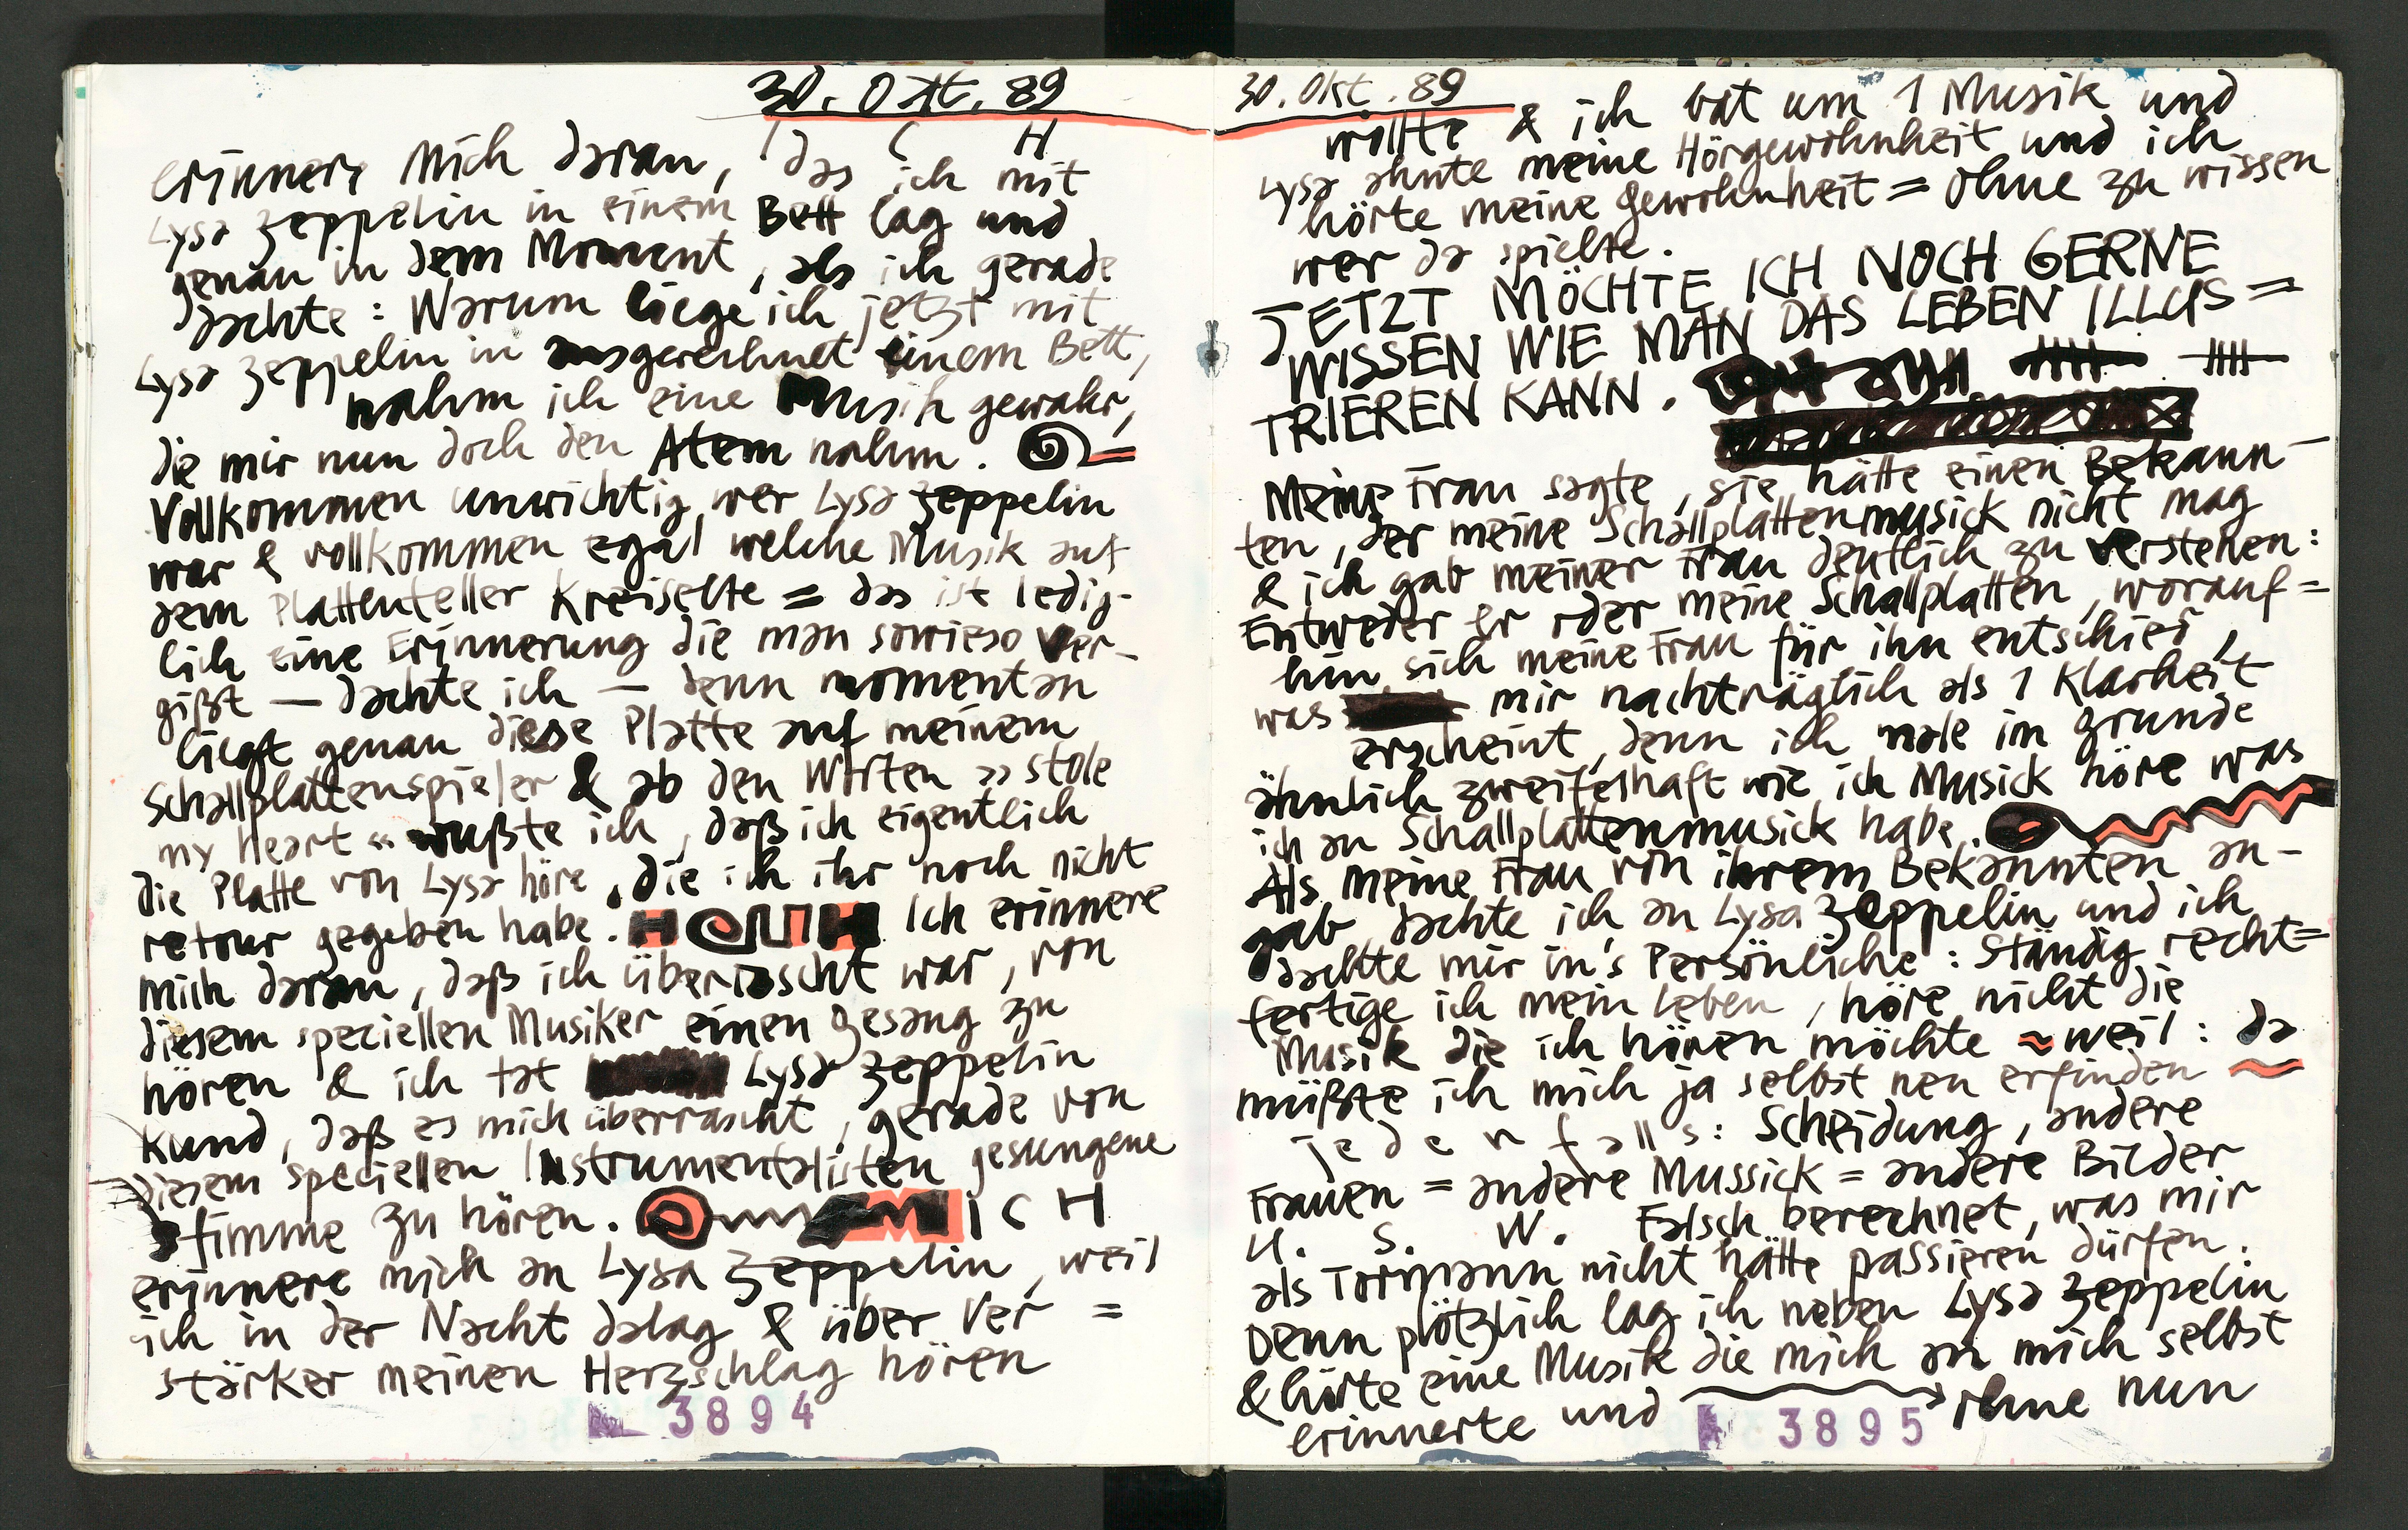 30. Okt. 89
I C H
erinnere mich daran, das ich mit
Lysa Zeppelin in einem Bett lag und
genau in dem Moment, als ich gerade
dachte: Warum liege ich jetzt mit
Lysa Zeppelin in ausgerechnet einem Bett,
nahm ich eine Musik gewahr,
die mir nun doch den Atem nahm.
Vollkommen unwichtig, wer Lysa Zeppelin
war & vollkommen egal welche Musik auf
dem Plattenteller Kreiselte = das ist ledig-
lich eine Erinnerung die man sowieso ver-
gißt — dachte ich — denn momentan
liegt genau diese Platte auf meinem
Schallplattenspieler & ab den Worten »stole
my Heart« wußte ich, daß ich eigentlich
die Platte von Lysa höre, die ich ihr noch nicht
retour gegeben habe. Ich erinnere
mich daran, daß ich überrascht war, von
diesem speciellen Musiker einen Gesang zu
hören & ich tat Lysa Zeppelin
kund, daß es mich überrascht, gerade von
diesem speciellen Instrumentalisten gesungene
Stimme zu hören. ICH
erinnere mich an Lysa Zeppelin, weil
ich in der Nacht dalag & über Ver =
stärker meinen Herzschlag hören
3894
30. Okt. 89
wollte & ich bat um 1 Musik und
Lysa ahnte meine Hörgewohnheit und ich
hörte meine Gewohnheit = ohne zu wissen
wer da spielte.
JETZT MÖCHTE ICH NOCH GERNE
WISSEN WIE MAN DAS LEBEN ILLUS =
TRIEREN KANN.
Meine Frau sagte, sie hätte einen Bekann-
ten, der meine Schallplattenmusick nicht mag
& ich gab meiner Frau deutlich zu verstehen:
Entweder er oder meine Schallplatten, worauf =
hin sich meine Frau für ihn entschied,
was mir nachträglich als 1 Klarheit
erscheint, denn ich male im Grunde
ähnlich zweifelhaft wie ich Musick höre was
ich an Schallplattenmusick habe.
Als meine Frau von ihrem Bekannten an-
gab dachte ich an Lysa Zeppelin und ich
dachte mir in's Persönliche: Ständig recht =
fertige ich mein Leben, höre nicht die
Musik die ich hören möchte ~ weil: da
müßte ich mich ja selbst neu erfinden ~
jedenfalls: Scheidung, andere
Frauen = andere Mussick = andere Bilder
U. S. W. Falsch berechnet, was mir
als Tormann nicht hätte passieren dürfen.
Denn plötzlich lag ich neben Lysa Zeppelin
& hörte eine Musik die mich an mich selbst
erinnerte und → ohne nun
3895